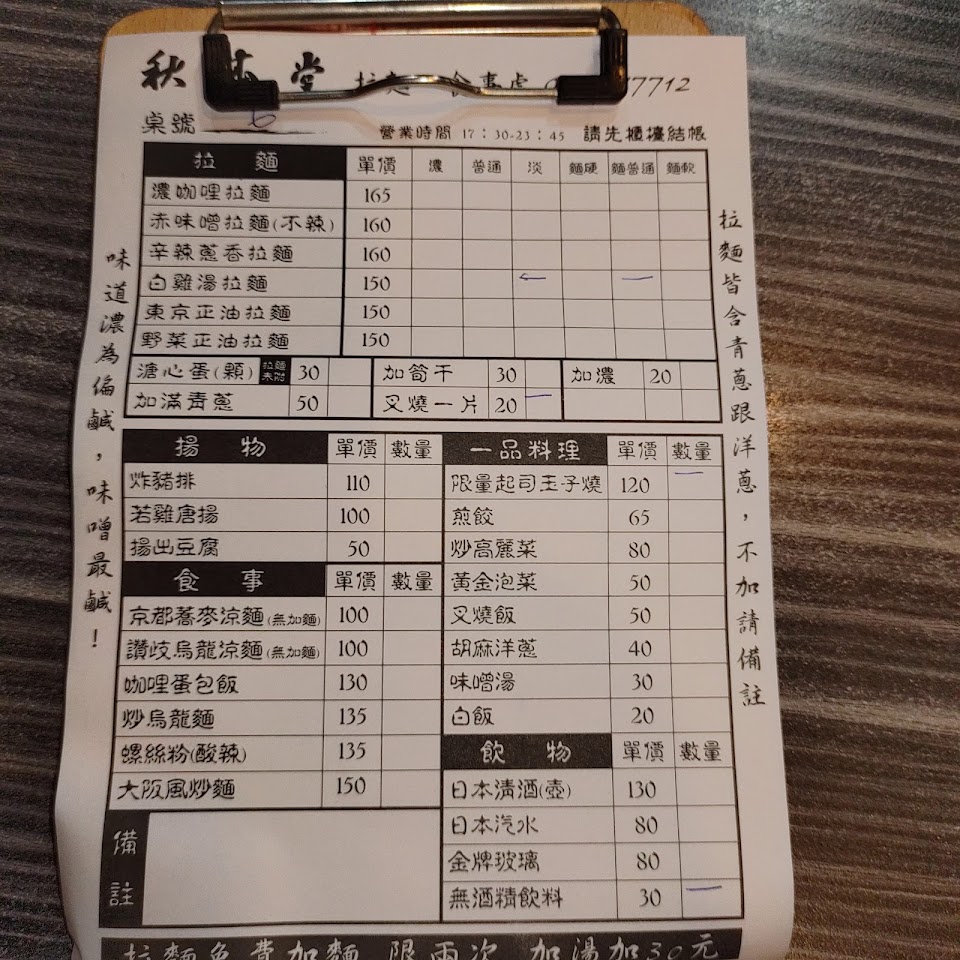 秋 堂 7712
桌號 6 營業時間 17：30-23：45 請先櫃檯結帳
拉麵 單價 濃 普通 淡 麵硬 麵普通 麵軟
濃咖哩拉麵 165
赤味噌拉麵(不辣) 160
辛辣蔥香拉麵 160
白雞湯拉麵 150
東京正油拉麵 150
野菜正油拉麵 150
溏心蛋(顆) 拉麵未附 30 加筍干 30 加濃 20
加滿青蔥 50 叉燒一片 20
味道濃為偏鹹，味噌最鹹！
拉麵皆含青蔥跟洋蔥，不加請備註
揚物 單價 數量
炸豬排 110
若雞唐揚 100
揚出豆腐 50
食事 單價 數量
京都蕎麥涼麵(無加麵) 100
讚歧烏龍涼麵(無加麵) 100
咖哩蛋包飯 130
炒烏龍麵 135
螺絲粉(酸辣) 135
大阪風炒麵 150
備註
一品料理 單價 數量
限量起司玉子燒 120
煎餃 65
炒高麗菜 80
黃金泡菜 50
叉燒飯 50
胡麻洋蔥 40
味噌湯 30
白飯 20
飲物 單價 數量
日本清酒(壺) 130
日本汽水 80
金牌玻璃 80
無酒精飲料 30
拉麵免費加麵 限兩次 加湯加30元